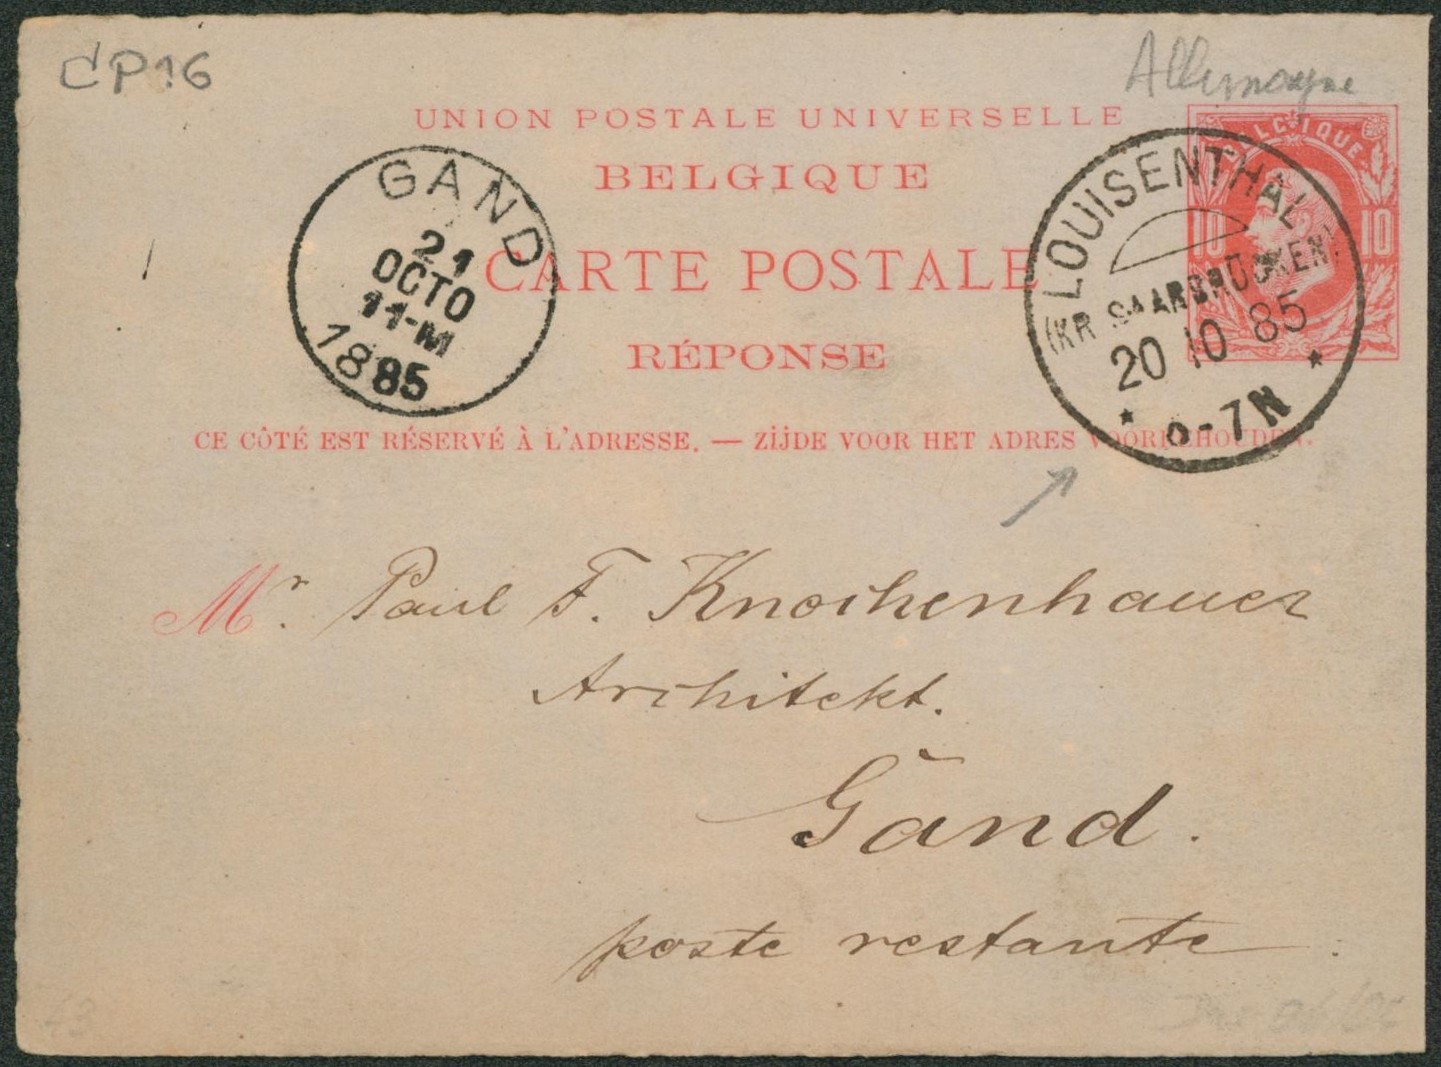 CP16
Allemagne
UNION POSTALE UNIVERSELLE
BELGIQUE
CARTE POSTALE
RÉPONSE
CE CÔTÉ EST RÉSERVÉ À L'ADRESSE. — ZIJDE VOOR HET ADRES VOORBEHOUDEN.
BELGIQUE
10 10
GAND
21
OCTO
11-M
1885
LOUISENTHAL
(KR SAARBRÜCKEN)
20 10 85
6-7N
Mr. Paul F. Knochenhauer
Architekt.
Gand.
poste restante
43